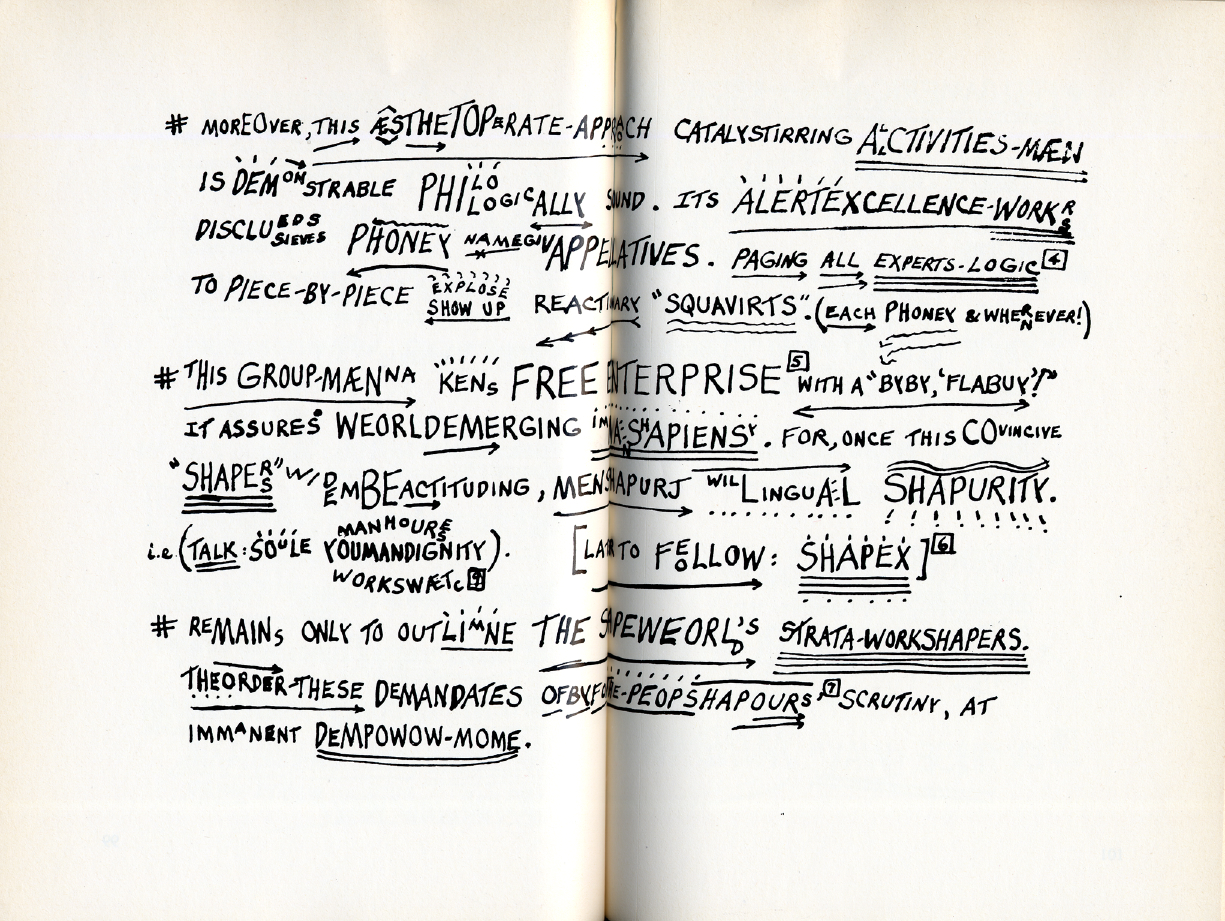 # MOREOVER, THIS ÆSTHETOPERATE-APPROACH CATALYSTIRRING ALCTIVITIES-MÆN
IS DEMONSTRABLE PHILOLOGICALLY SOUND. ITS ALERTEXCELLENCE-WORKRS
DISCLUEDS SIEVES PHONEY NAMEGIVAPPELLATIVES. PAGING ALL EXPERTS-LOGIC 4
TO PIECE-BY-PIECE EXPLOSE SHOW UP REACTINARY "SQUAVIRTS". (EACH PHONEY & WHERNEVER!)
# THIS GROUP-MÆNNA KENS FREE ENTERPRISE 5 WITH A "BYBY, 'FLABUY'?"
IT ASSURES WEORLDEMERGING SHAPIENSY. FOR, ONCE THIS COVINCIVE
"SHAPERS" W/ DEMBEACTITUDING, MENSHAPURJ WILLINGUAL SHAPURITY.
MANHOURS
i.e (TALK: SOULE YOUMANDIGNITY). [LATR TO FEOLLOW: SHAPEX] 6
WORKSWÆTC ?
# REMAINS ONLY TO OUTLIMNE THE SHAPEWEORLD'S STRATA-WORKSHAPERS.
THEORDER-THESE DEMANDATES OFBYFORE-PEOPSHAPOURS, 7 SCRUTINY, AT
IMMANENT DEMPOWOW-MOME.